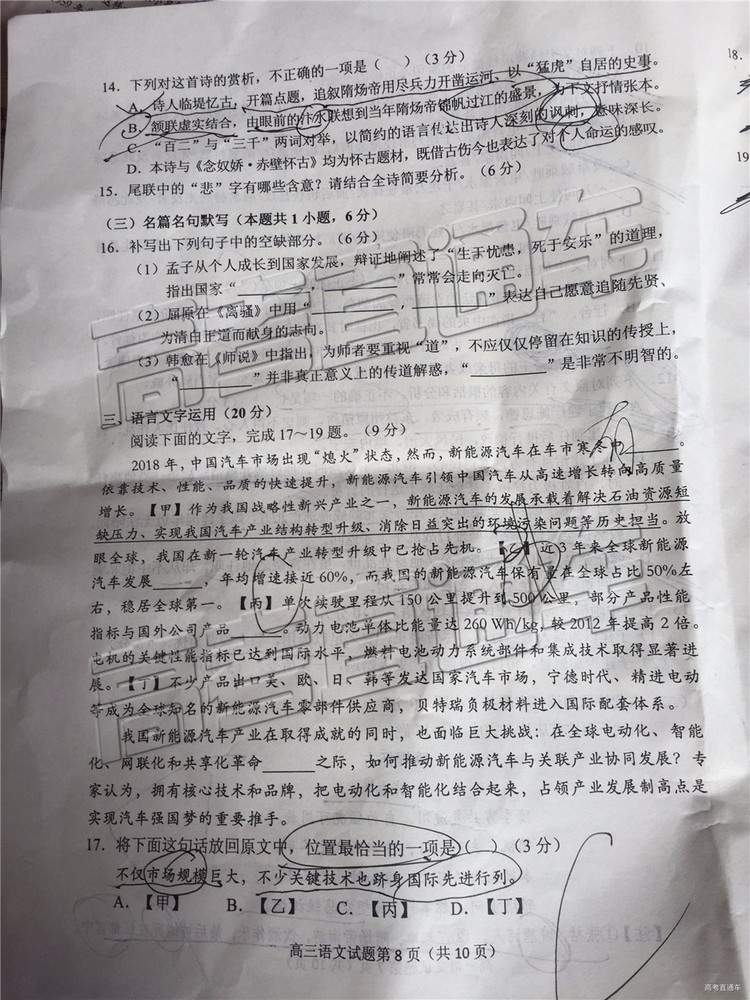 14. 下列对这首诗的赏析，不正确的一项是（　）（3 分）
A. 诗人临堤忆古，开篇点题，追叙隋炀帝用尽兵力开凿运河、以“猛虎”自居的史事。
B. 颔联虚实结合，由眼前的汴水联想到当年隋炀帝锦帆过江的盛景，为下文抒情张本。
C. “百二”与“三千”两词对举，以简约的语言传达出诗人深刻的讽刺，意味深长。
D. 本诗与《念奴娇·赤壁怀古》均为怀古题材，既借古伤今也表达了对个人命运的感叹。
15. 尾联中的“悲”字有哪些含意？请结合全诗简要分析。（6 分）
（三）名篇名句默写（本题共 1 小题，6 分）
16. 补写出下列句子中的空缺部分。（6 分）
（1）孟子从个人成长到国家发展，辩证地阐述了“生于忧患，死于安乐”的道理，
指出国家“________，________”常常会走向灭亡。
（2）屈原在《离骚》中用“________，________”表达自己愿意追随先贤、
为清白正道而献身的志向。
（3）韩愈在《师说》中指出，为师者要重视“道”，不应仅仅停留在知识的传授上，
“________”并非真正意义上的传道解惑，“________”是非常不明智的。
三、语言文字运用（20 分）
阅读下面的文字，完成 17～19 题。（9 分）
2018 年，中国汽车市场出现“熄火”状态，然而，新能源汽车在车市寒冬中______。
依靠技术、性能、品质的快速提升，新能源汽车引领中国汽车从高速增长转向高质量
增长。【甲】作为我国战略性新兴产业之一，新能源汽车的发展承载着解决石油资源短
缺压力、实现我国汽车产业结构转型升级、消除日益突出的环境污染问题等历史担当。放
眼全球，我国在新一轮汽车产业转型升级中已抢占先机。【乙】近 3 年来全球新能源
汽车发展______，年均增速接近 60%，而我国的新能源汽车保有量在全球占比 50%左
右，稳居全球第一。【丙】单次续驶里程从 150 公里提升到 500 公里，部分产品性能
指标与国外公司产品______。动力电池单体比能量达 260 Wh/kg，较 2012 年提高 2 倍。
电机的关键性能指标已达到国际水平，燃料电池动力系统部件和集成技术取得显著进
展。【丁】不少产品出口美、欧、日、韩等发达国家汽车市场，宁德时代、精进电动
等成为全球知名的新能源汽车零部件供应商，贝特瑞负极材料进入国际配套体系。
我国新能源汽车产业在取得成就的同时，也面临巨大挑战：在全球电动化、智能
化、网联化和共享化革命______之际，如何推动新能源汽车与关联产业协同发展？专
家认为，拥有核心技术和品牌，把电动化和智能化结合起来，占领产业发展制高点是
实现汽车强国梦的重要推手。
17. 将下面这句话放回原文中，位置最恰当的一项是（　）（3 分）
不仅市场规模巨大，不少关键技术也跻身国际先进行列。
A. 【甲】　B. 【乙】　C. 【丙】　D. 【丁】
高三语文试题第 8 页（共 10 页）
18.
19
高考直通车
高考直通车
高考直通车